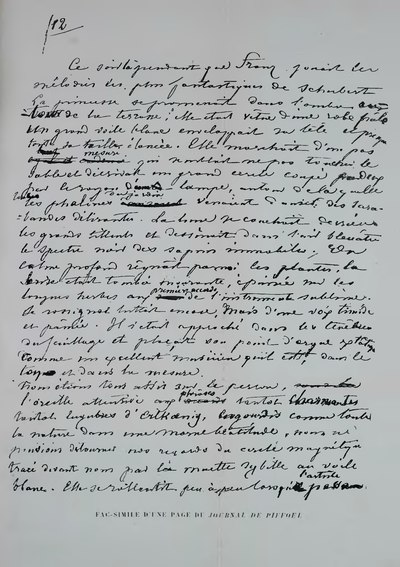 12
Ce soir là pendant que Franz jouait les
mélodies les plus fantastiques de Schubert
La princesse se promenait dans l'ombre
de la terrasse; elle était vêtue d'une robe pâle
Un grand voile blanc enveloppait sa tête et presque
toute sa taille élancée. Elle marchait d'un pas
mesuré qui semblait ne pas toucher le
sable et décrivait un grand cercle coupé
par le rayon d'une lampe, autour de laquelle
les phalènes du jardin venaient danser des sara-
bandes délirantes. La lune se couchait derrière
les grands tilleuls et dessinait dans l'air bleuâtre
le spectre noir des sapins immobiles. Un
calme profond régnait parmi les plantes, la
brise était tombée mourante, épuisée sur les
longues herbes aux premiers accords de l'instrument sublime.
Le rossignol luttait encore, mais d'une voix timide
et pâmée. Il s'était approché dans les ténèbres
du feuillage et plaçait son point d'orgue extatique
comme un excellent musicien qu'il est, dans le
ton et dans la mesure.
Nous étions tous assis sur le perron,
l'oreille attentive aux phrases tantôt charmantes
tantôt lugubres d'Erlkœnig, engourdis comme toute
la nature dans une morne béatitude, nous ne
pouvions détourner nos regards du cercle magnétique
tracé devant nous par la muette sybille au voile
blanc. Elle se ralentit peu à peu lorsque l'artiste
FAC-SIMILE D'UNE PAGE DU JOURNAL DE PIFFOEL